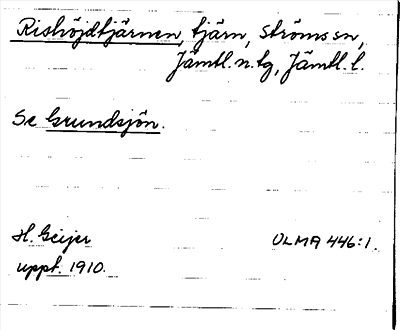 Rishöjdtjärnen, tjärn, Ströms sn,
Jämtl. n. tg, Jämtl. l.
Se Grundsjön.
H. Geijer
ULMA 446:1.
uppt. 1910.